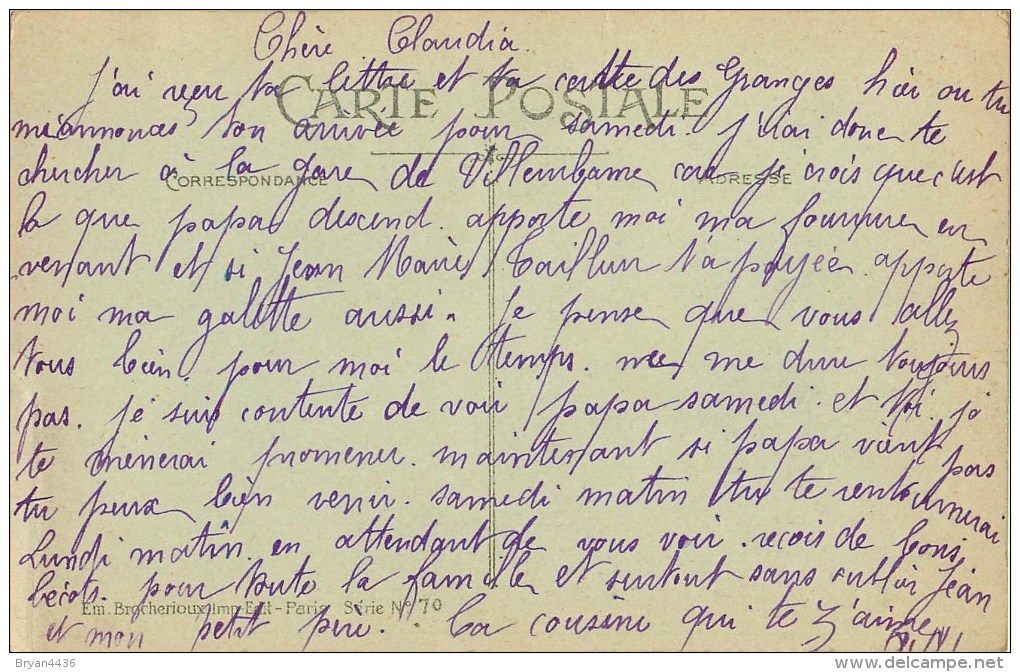 Chère Claudia.
J'ai reçu ta lettre et ta carte des Granges hier ou tu
CARTE POSTALE
m'annonces ton arrivée pour samedi. j'irai donc te
chercher à la gare de Villeurbanne car je crois que c'est
CORRESPONDANCE
ADRESSE
la que papa descend. apporte moi ma fourrure en
venant et si Jean Marie Tailleur t'a payée apporte
moi ma galette aussi. Je pense que vous allez
tous bien. pour moi le temps me dure toujours
pas. je suis contente de voir papa samedi. et toi je
te mènerai promener. maintenant si papa vient pas
tu peux bien venir samedi matin tu te rentournerai
Lundi matin. en attendant de vous voir. recois de bons
bécots. pour toute la famille et surtout sans oublier Jean
Em. Brocherioux, Imp-Edit - Paris Série No 70
et mon petit père. Ta cousine qui te z'aime
Bryan4436
www.delcampe.net